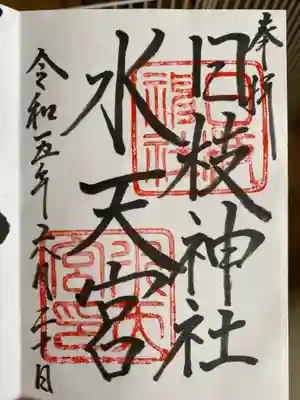 奉拝
日枝神社
水天宮
令和五年六月三十日